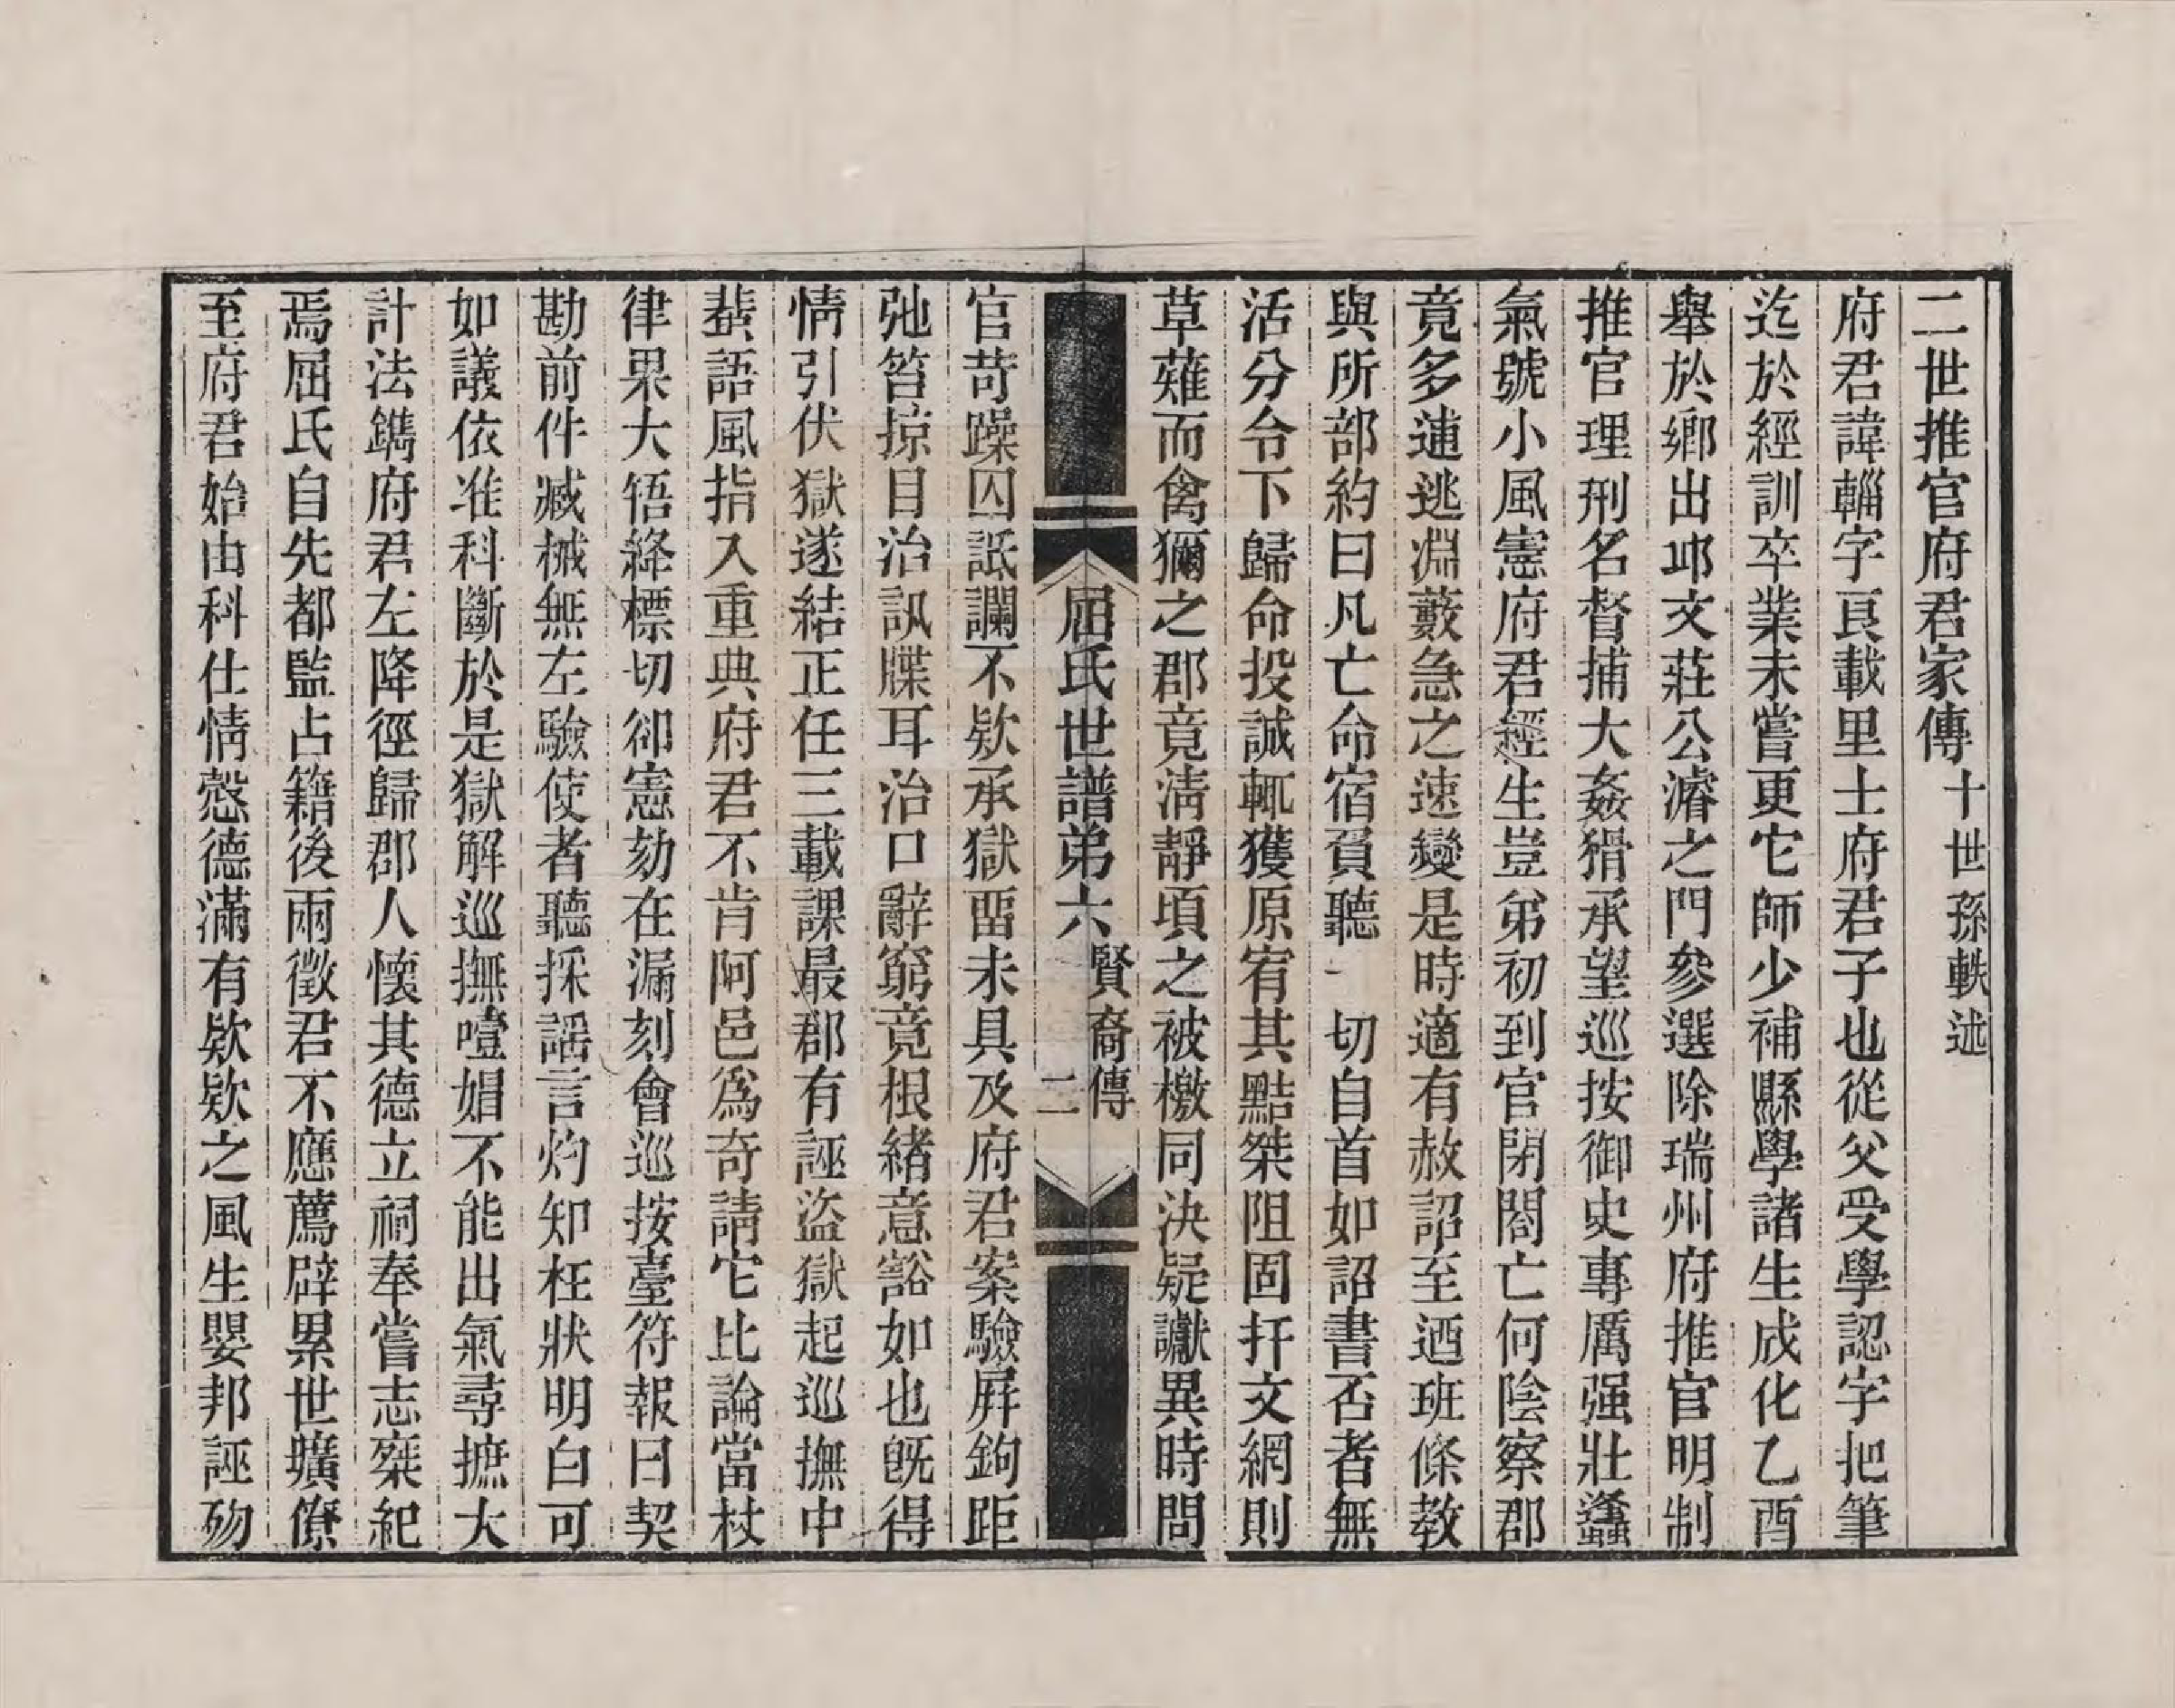 二世推官府君家傳 十世孫軼述
府君諱輜字貢載里士府君子也從父受學認字把筆
迄於經訓卒業未嘗更它師少補縣學諸生成化乙酉
舉於鄉出邱文莊公濬之門參選除瑞州府推官明制
推官理刑名督捕大姦猾承望巡按御史專厲强壯蠭
氣號小風憲府君經生豈弟初到官閉閤亡何陰察郡
竟多逋逃淵藪急之速變是時適有赦詔至迺班條教
與所部約曰凡亡命宿負聽一切自首如詔書否者無
活分令下歸命投誠輒獲原宥其黠桀阻固扞文網則
草薙而禽獮之郡竟淸靜頃之被檄同決疑讞異時問
屈氏世譜弟六 賢裔傳 二
官苛躁囚詆讕不欵承獄畱未具及府君案驗屛鉤距
弛笞掠目治訊牒耳治口辭窮竟根緒意豁如也旣得
情引伏獄遂結正任三載課最郡有誣盜獄起巡撫中
蜚語風指入重典府君不肯阿邑爲奇請它比論當杖
律果大牾絳標切卻憲劾在漏刻會巡按臺符報曰契
勘前件臧械無左驗使者聽採謡言灼知枉狀明白可
如議依准科斷於是獄解巡撫噎媢不能出氣尋摭大
計法鐫府君左降徑歸郡人懷其德立祠奉嘗志椉紀
焉屈氏自先都監占籍後兩徵君不應薦辟累世壙僚
至府君始由科仕情愨德滿有欵欵之風生嬰邦誣歾